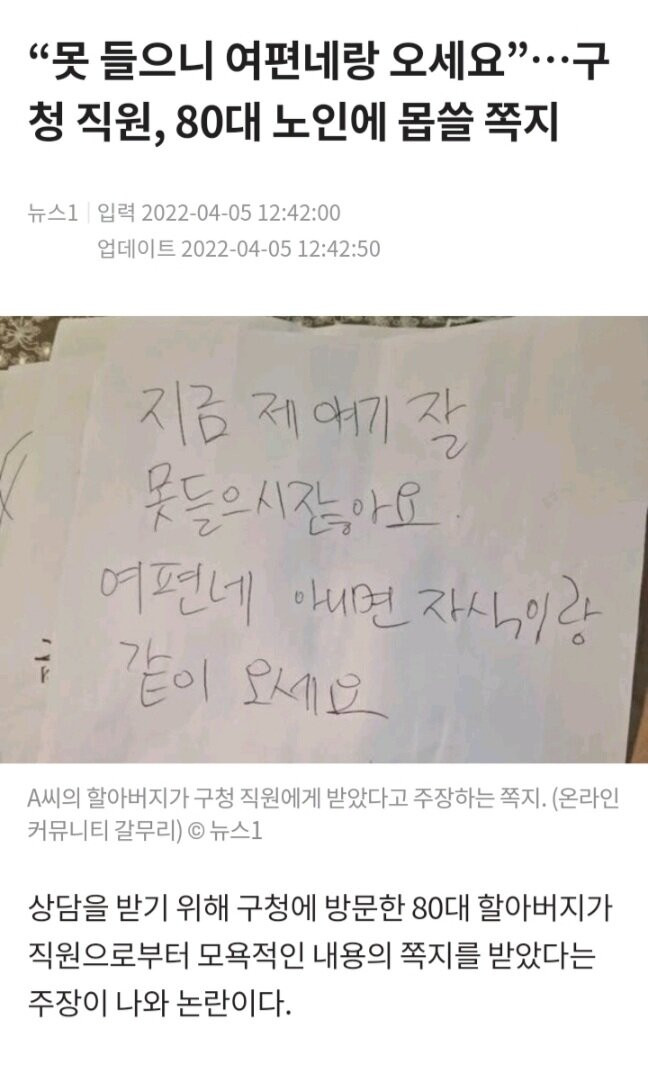 “못 들으니 여편네랑 오세요”…구
청 직원, 80대 노인에 몹쓸 쪽지
뉴스1 | 입력 2022-04-05 12:42:00
업데이트 2022-04-05 12:42:50
지금 제 얘기 잘
못들으시잖아요.
여편네 아니면 자식이랑
같이 오세요
A씨의 할아버지가 구청 직원에게 받았다고 주장하는 쪽지. (온라인
커뮤니티 갈무리) © 뉴스1
상담을 받기 위해 구청에 방문한 80대 할아버지가
직원으로부터 모욕적인 내용의 쪽지를 받았다는
주장이 나와 논란이다.